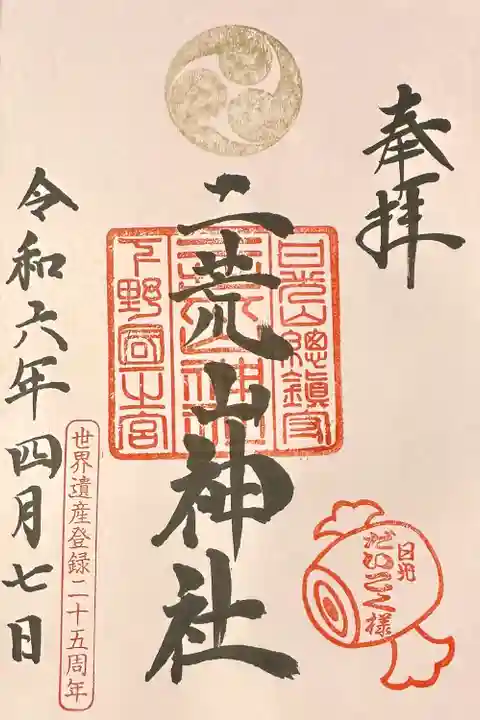 奉拝
日光山總鎮守
二荒山神社
下野國一之宮
二荒山神社
日光
だいこく様
令和六年四月七日
世界遺産登録二十五周年